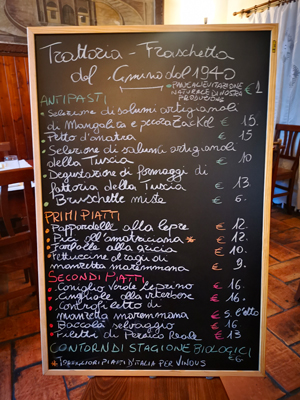 Trattoria - Fraschetta
del Cimino dal 1940
PANE A LIEVITAZIONE € 1
NATURALE DI NOSTRA
PRODUZIONE
ANTIPASTI
Selezione di salumi artigianali
di Mangalitza e pecora Zackel € 15.
Petto d'anatra € 15
Selezione di salumi artigianali
della Tuscia € 10.
Degustazione di formaggi di
fattoria della Tuscia € 13.
Bruschette miste € 6.
PRIMI PIATTI
Pappardelle alla lepre € 12.
all'amatriciana € 12.
Farfalle alla gricia € 10.
Fettuccine al ragù di
manzetta maremmana € 9.
SECONDI PIATTI
Coniglio verde leprino € 16.
Cinghiale alla viterbese € 16.
Controfiletto di
manzetta maremmana € 5. l'etto
Baccalà selvaggio € 16
Filetti di Persico Reale € 15
CONTORNI DI STAGIONE BIOLOGICI
€6.
PIATTI D'ITALIA PER